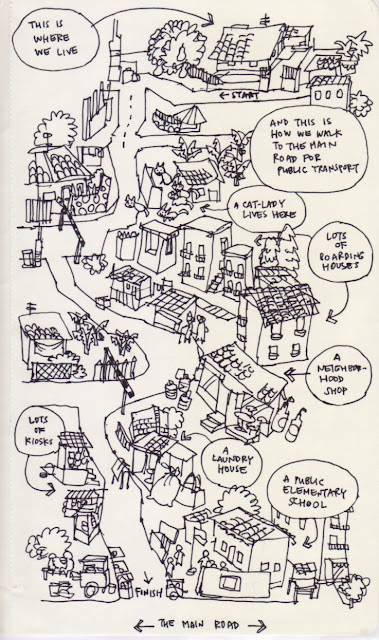 THIS IS
WHERE
WE LIVE
← START
AND THIS IS
HOW WE WALK
TO THE MAIN
ROAD FOR
PUBLIC TRANSPORT
A CAT-LADY
LIVES HERE
LOTS
OF
BOARDING
HOUSES
A
NEIGHBOR-
HOOD
SHOP
LOTS
OF
KIOSKS
A
LAUNDRY
HOUSE
A PUBLIC
ELEMENTARY
SCHOOL
FINISH
← THE MAIN ROAD →